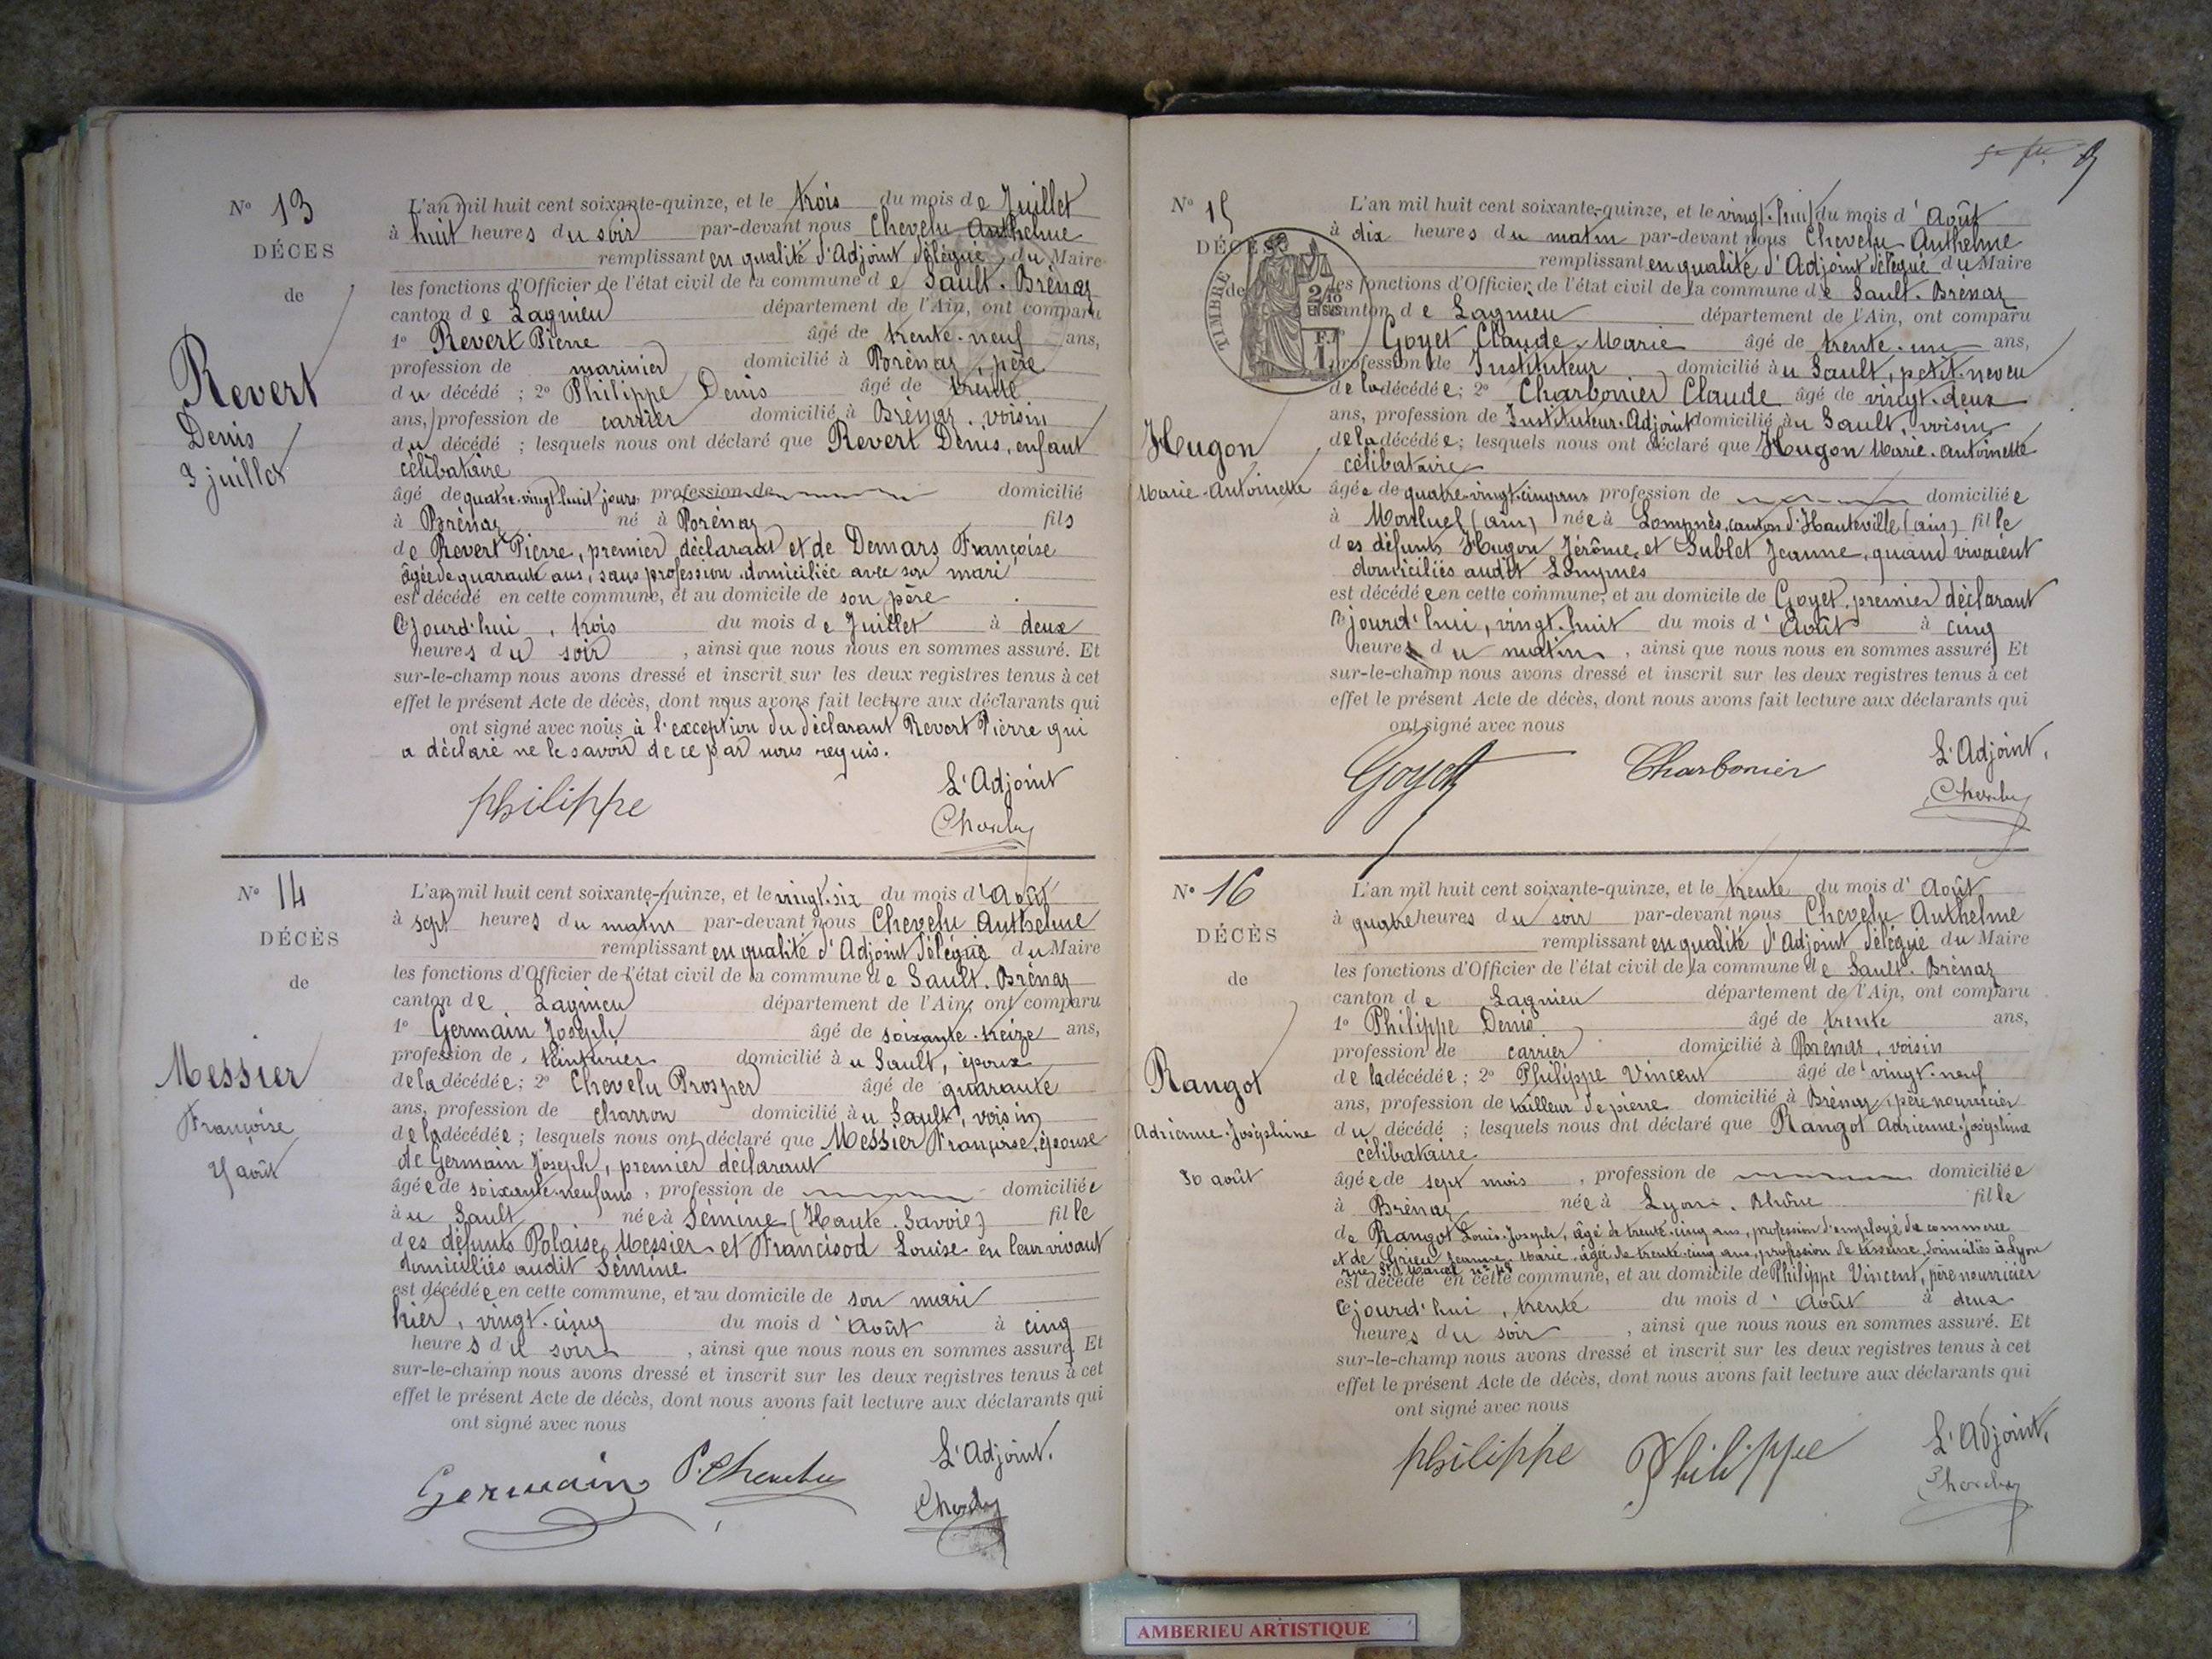 Nº 13
DÉCES
de
Revert
Denis
3 juillet
L'an mil huit cent soixante-quinze, et le trois du mois de Juillet
à huit heures du soir par-devant nous Chevelu Anthelme
remplissant en qualité d'Adjoint délégué du Maire
les fonctions d'Officier de l'état civil de la commune de Sault-Brénaz
canton de Lagnieu département de l'Ain, ont comparu
1º Revert Pierre âgé de trente-neuf ans,
profession de marinier domicilié à Brénaz, père
du décédé ; 2º Philippe Denis âgé de trente
ans, profession de carrier domicilié à Brénaz, voisin
du décédé ; lesquels nous ont déclaré que Revert Denis, enfant
célibataire
âgé de quatre-vingt huit jours, profession de domicilié
à Brénaz né à Brénaz fils
de Revert Pierre, premier déclarant et de Demars Françoise
âgée de quarante ans, sans profession domiciliée avec son mari
est décédé en cette commune, et au domicile de son père
Cejourd'hui, trois du mois de Juillet à deux
heures du soir, ainsi que nous nous en sommes assuré. Et
sur-le-champ nous avons dressé et inscrit sur les deux registres tenus à cet
effet le présent Acte de décès, dont nous avons fait lecture aux déclarants qui
ont signé avec nous à l'exception du déclarant Revert Pierre qui
a déclaré ne le savoir de ce par nous requis.
Philippe
L'Adjoint
Chevelu
Nº 14
DÉCÈS
de
Messier
Françoise
25 août
L'an mil huit cent soixante-quinze, et le vingt-six du mois d'Août
à sept heures du matin par-devant nous Chevelu Anthelme
remplissant en qualité d'Adjoint délégué du Maire
les fonctions d'Officier de l'état civil de la commune de Sault-Brénaz
canton de Lagnieu département de l'Ain, ont comparu
1º Germain Joseph âgé de soixante-treize ans,
profession de teinturier domicilié au Sault, époux
de la décédée ; 2º Chevelu Prosper âgé de quarante
ans, profession de charron domicilié au Sault, voisin
de la décédée ; lesquels nous ont déclaré que Messier Françoise, épouse
de Germain Joseph, premier déclarant
âgée de soixante-neuf ans, profession de domiciliée
au Sault née à Sémine (Haute-Savoie) fille
des défunts Polaise Messier et Francisod Louise en leur vivant
domiciliés audit Sémine
est décédée en cette commune, et au domicile de son mari
hier, vingt-cinq du mois d'Août à cinq
heures du soir, ainsi que nous nous en sommes assuré. Et
sur-le-champ nous avons dressé et inscrit sur les deux registres tenus à cet
effet le présent Acte de décès, dont nous avons fait lecture aux déclarants qui
ont signé avec nous
Germain P. Chevelu
L'Adjoint.
Chevelu
Nº 15
DÉCÈS
de
TIMBRE
Hugon
Marie-Antoinette
L'an mil huit cent soixante-quinze, et le vingt-huit du mois d'Août
à dix heures du matin par-devant nous Chevelu Anthelme
remplissant en qualité d'Adjoint délégué du Maire
les fonctions d'Officier de l'état civil de la commune de Sault-Brénaz
canton de Lagnieu département de l'Ain, ont comparu
Goyet Claude-Marie âgé de trente-un ans,
profession de Instituteur domicilié au Sault, petit-neveu
de la décédée ; 2º Charbonier Claude âgé de vingt-deux
ans, profession de Instituteur-Adjoint domicilié au Sault, voisin
de la décédée ; lesquels nous ont déclaré que Hugon Marie-Antoinette
célibataire
âgée de quatre-vingt-cinq ans profession de domiciliée
à Montluel (ain) née à Lompnès, canton d'Hauteville (ain) fille
des défunts Hugon Jérôme et Sublet Jeanne, quand vivaient
domiciliés audit Lompnès
est décédée en cette commune, et au domicile de Goyet, premier déclarant
Cejourd'hui, vingt-huit du mois d'Août à cinq
heures du matin, ainsi que nous nous en sommes assuré. Et
sur-le-champ nous avons dressé et inscrit sur les deux registres tenus à cet
effet le présent Acte de décès, dont nous avons fait lecture aux déclarants qui
ont signé avec nous
Goyet
Charbonier
L'Adjoint,
Chevelu
Nº 16
DÉCÈS
de
Rangot
Adrienne-Joséphine
30 août
L'an mil huit cent soixante-quinze, et le trente du mois d'Août
à quatre heures du soir par-devant nous Chevelu Anthelme
remplissant en qualité d'Adjoint délégué du Maire
les fonctions d'Officier de l'état civil de la commune de Sault-Brénaz
canton de Lagnieu département de l'Ain, ont comparu
1º Philippe Denis âgé de trente ans,
profession de carrier domicilié à Brénaz, voisin
de la décédée ; 2º Philippe Vincent âgé de vingt-neuf
ans, profession de tailleur de pierre domicilié à Brénaz, père nourricier
du décédé ; lesquels nous ont déclaré que Rangot Adrienne-Joséphine
célibataire
âgée de sept mois, profession de domiciliée
à Brénaz née à Lyon-Rhône fille
de Rangot Louis-Joseph, âgé de trente-cinq ans, profession d'employé de commerce
et de Grieu Jeanne-Marie âgée de trente-cinq ans, profession de tisseuse, domiciliés à Lyon
rue St Marcel nº 48
est décédé en cette commune, et au domicile de Philippe Vincent, père nourricier
Cejourd'hui, trente du mois d'Août à deux
heures du soir, ainsi que nous nous en sommes assuré. Et
sur-le-champ nous avons dressé et inscrit sur les deux registres tenus à cet
effet le présent Acte de décès, dont nous avons fait lecture aux déclarants qui
ont signé avec nous
Philippe Philippe
L'Adjoint,
Chevelu
AMBERIEU ARTISTIQUE